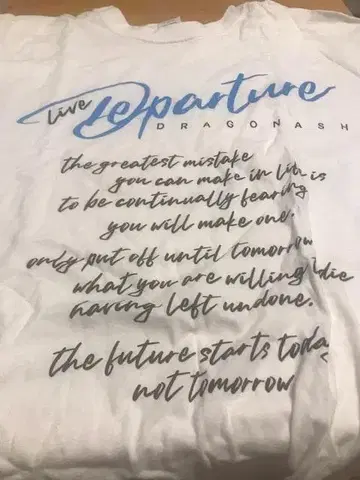 live Departure
DRAGONASH
the greatest mistake
you can make in life is
to be continually fearing
you will make one.
only put off until tomorrow
what you are willing die
having left undone.
the future starts today
not tomorrow